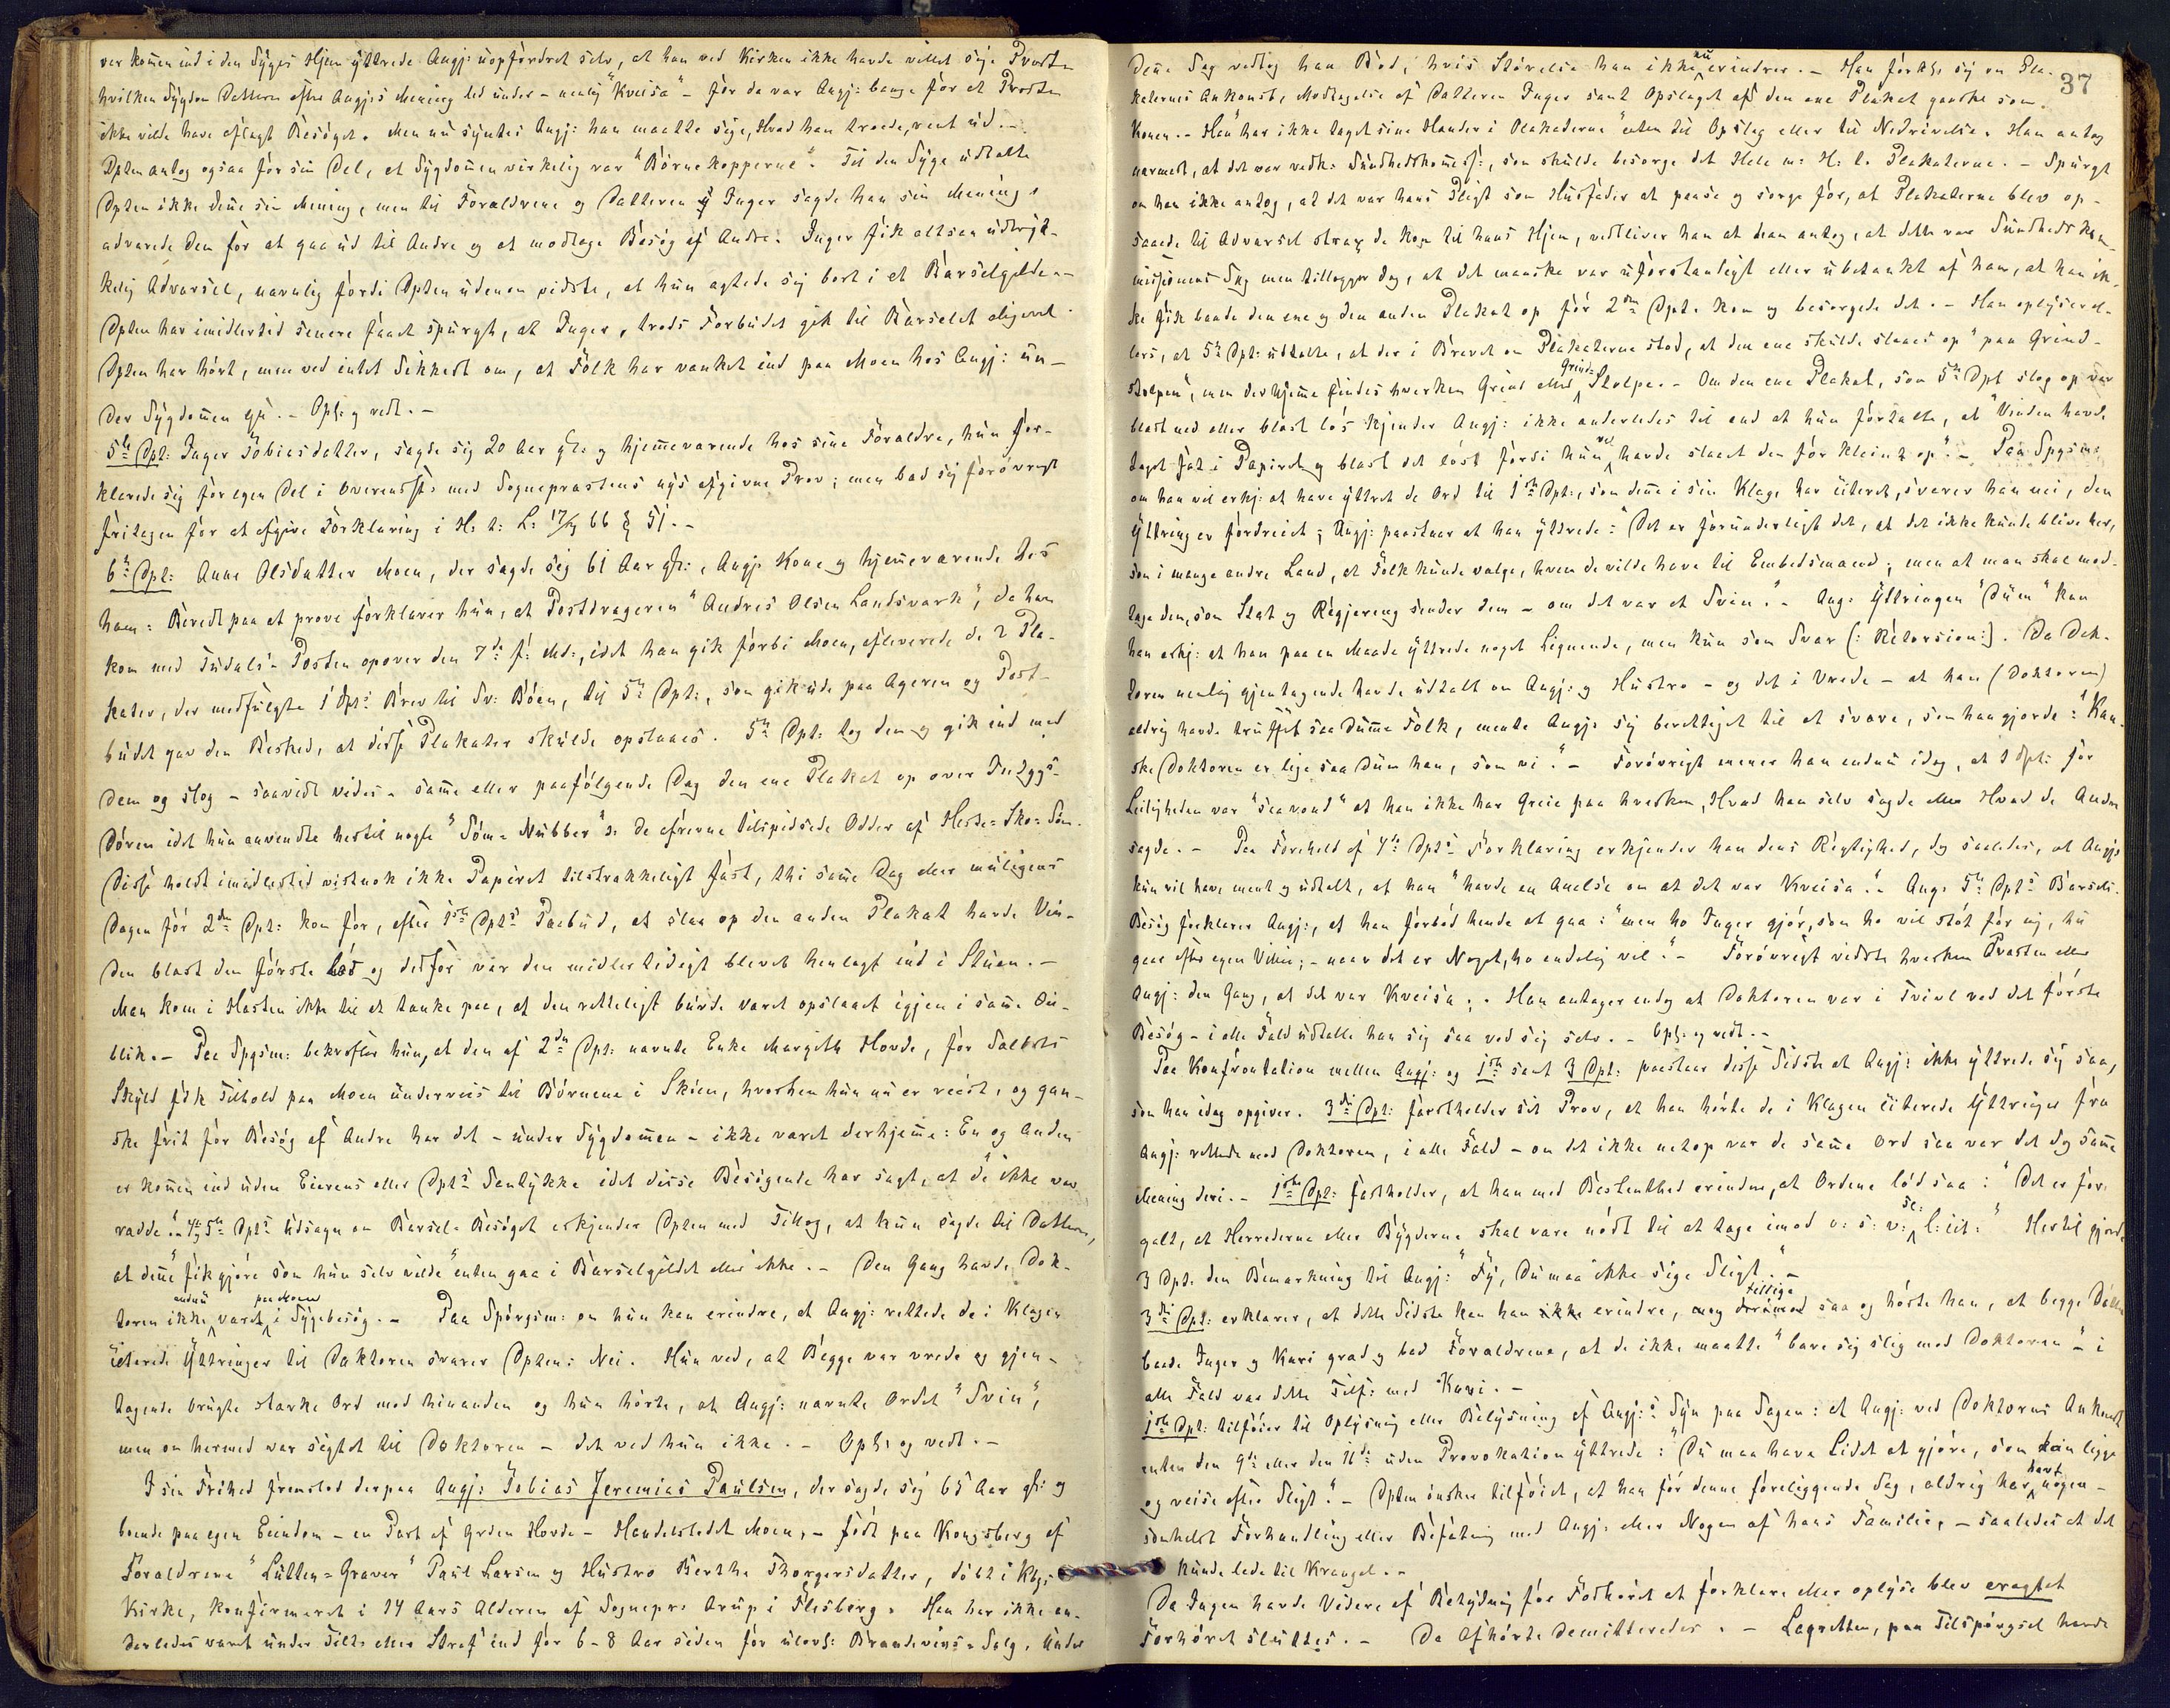 var kommen ind i den Syges Hjem yttrede Angj: uopfordret selv, at han ved Kirken ikke havde villet sige Presten
hvilken Sygdom Datteren efter Angj:s Mening led under – nemlig "Kveisa" – for da var Angj: bange for at Presten
ikke vilde have aflagt Besøget. Men nu syntes Angj: han maatte sige, Hvad han troede, rent ud. –
Dpten antog ogsaa for sin Del, at Sygdommen virkelig var "Børnekopperne". Til den Syge udtalte
Dpten ikke denne sin Mening, men til Forældrene og Datteren Inger sagde han sin Mening,
advarede dem for at gaa ud til Andre og at modtage Besøg af Andre. Inger fik altsaa udtryk-
kelig Advarsel, navnlig fordi Dpten udenom vidste, at hun agtede sig bort i et Barselgilde. –
Dpten har imidlertid senere faaet spurgt, at Inger, trods Forbudet gik til Barselet aligevel.
Dpten har hørt, men ved intet Sikkert om, at Folk har vanket ind paa Moen hos Angj: un-
der Sygdommen gs. – Opl: og vedt. –
5te Dpt: Inger Tobiasdatter, sagde sig 20 Aar gl: og hjemmeværende hos sine Forældre, hun for-
klarede sig for egen Del i Overensst: med Sogneprestens nys afgivne Prov; men bad sig forøvrigt
fritagen for at afgive Forklaring i H: t: L: 17/9 66 § 51. –
6te Dpt: Anne Olsdatter Moen, der sagde sig 61 Aar gl:, Angj: Kone og hjemmeværende hos
ham: Beredt paa at prove forklarer hun, at Postdrageren "Andres Olsen Landsværk", da han
kom med Tudals-Posten opover den 7de f: Md:, idet han gik forbi Moen, afleverede de 2 Pla-
kater, der medfulgte 1 Dpts Brev til Sv: Bøen, til 5te Dpt:, som gik ude paa Ageren og Post-
budet gav den Besked, at disse Plakater skulde opslaaes. 5te Dpt: tog dem og gik ind med
dem og slog – saavidt vides – samme eller paafølgende Dag den ene Plakat op over Indgs-
Døren idet hun anvendte hertil nogle "Søm-Nubber" ɔ: de afrevne tilspidsede Odder af Heste-Sko-Søm.
Disse holdt imidlertid vistnok ikke Papiret tilstrækkeligt fast, thi samme Dag eller muligens
Dagen før 2den Dpt: kom for, efter 1ste Dpts Paabud, at slaa op den anden Plakat havde Vin-
den blæst den første løs og derfor var den midlertidigt blevet henlagt ind i Stuen. –
Man kom i Hasten ikke til at tænke paa, at den retteligst burde været opslaaet igjen i samme Øie-
blik. – Paa Spgsm: bekræfter hun, at den af 2den Dpt: nævnte Enke Margith Hovde, for Salets
Skyld fik Tilhold paa Moen underveis til Børnene i Skien, hvorhen hun nu er reist, og gan-
ske frit for Besøg af Andre har det – under Sygdommen – ikke været derhjemme: En og Anden
er kommen ind uden Eierens eller Dpts Samtykke idet disse Besøgende har sagt, at de "ikke var
rædde". – 4 og 5te Dpts Udsagn om Barsel-Besøget erkjender Dpten med Tillæg, at hun sagde til Datteren,
at denne "fik gjøre som hun selv vilde" enten gaa i Barselgildet eller ikke. – Den Gang havde Dok-
toren ikke endnu været paa Moen i Sygebesøg. – Paa Spørgsm: om hun kan erindre, at Angj: rettede de i Klagen
citerede Yttringer til Doktoren svarer Dpten: Nei. Hun ved, at Begge var vrede og gjen-
tagende brugte stærke Ord mod hinanden og hun hørte, at Angj: nævnte Ordet "Svin",
men om hermed var sigtet til Doktoren – det ved hun ikke. – Opl: og vedt. –
I sin Frihed fremstod derpaa Angj: Tobias Jeremias Paulsen, der sagde sig 65 Aar gl: og
boende paa egen Eiendom – en Part af Grden Hovde – Handelstedet Moen, – født paa Kongsberg af
Forældrene "Lutten-Graver" Paul Larsen og Hustro Berthe Thorgersdatter, døbt i Kbgs
Kirke, konfirmeret i 14 Aars Alderen af Sognepr: Arup i Flesberg. Han har ikke an-
derledes været under Tilt: eller Straf end for 6–8 Aar siden for ulovl: Brændevins-Salg. Under
37
denne Sag vedtog han Bod, hvis Størrelse han ikke nu erindrer. – Han forkl: sig om Pla-
katernes Ankomst, Modtagelse af Datteren Inger samt Opslaget af den ene Plakat ganske som
Konen. – Han "har ikke taget sine Hænder i Plakaterne" enten til Opslag eller til Nedrivelse. Han antog
nærmest, at det var vedk: Sundhedskommiss:, som skulde besørge det Hele m: H: t: Plakaterne. – Spurgt
om han ikke antog, at det var hans Pligt som Husfader at paase og sørge for, at Plakaterne blev op-
saaede til Advarsel strax de kom til hans Hjem, vedbliver han at han antog, at dette var Sundhedskom-
missionens Sag men tillægger dog, at det maaske var uforstandigt eller ubetænkt af ham, at han ik-
ke fik baade den ene og den anden Plakat op før 2den Dpt. kom og besørgede det. – Han oplyser el-
lers, at 5te Dpt: udtalte, at der i Brevet om Plakaterne stod, at den ene skulde slaaes op "paa Grind-
stolpen", men derhjemme findes hverken Grind eller Grind-Stolpe. – Om den ene Plakat, som 5te Dpt slog op var
blæst ned eller blæst løs kjender Angj: ikke anderledes til end at hun fortalte, at "Vinden havde
taget fat i Papiret og blæst det løst fordi hun vel havde slaaet den for kleint op". – Paa Spgsm:
om han vil erkj: at have yttret de Ord til 1ste Dpt:, som denne i sin Klage har citeret, svarer han nei, den
Yttring er fordreiet; Angj: paastaar at han yttrede: "Det er forunderligt det, at det ikke kunde blive her,
som i mange andre Land, at Folk kunde vælge, hvem de vilde have til Embedsmænd; men at man skal mod-
tage dem, som Stat og Regjering sender dem – om det var et Svin." – Ang: Yttringen "Dum" kan
han erkj: at han paa en Maade yttrede noget Lignende, men kun som Svar (: Retorsion:). Da Dok-
toren nemlig gjentagende havde udtalt om Angj: og Hustro – og det i Vrede – at han (Doktoren)
aldrig havde truffet saa dumme Folk, mente Angj: sig berettiget til at svare, som han gjorde: "Kan-
ske Doktoren er lige saa dum han, som vi". – Forøvrigt mener han endnu idag, at 1 Dpt: for
Leiligheden var "saa vond" at han ikke har Greie paa hverken, Hvad han selv sagde eller Hvad de Andre
sagde. – Paa Forehold af 4de Dpts Forklaring erkjender han dens Rigtighed, dog saaledes, at Angj:
kun vil have ment og udtalt, at han "havde en Anelse om at det var Kveisa". – Ang: 5te Dpts Barsels-
Besøg forklarer Angj:, at han forbød hende at gaa: "men ho Inger gjør, som ho vil støt for mig, hu
gaar efter egen Villie; – naar det er Noget, ho endelig vil". – Forøvrigt vidste hverken Presten eller
Angj: den Gang, at det var Kveisa. – Han antager endog at Doktoren var i Tvivl ved det første
Besøg – i alle Fald udtalte han sig saa ved sig selv. – Opl: og vedt. –
Paa Konfrontation mellem Angj: og 1ste samt 3 Dpt: paastaar disse Sidste at Angj: ikke yttrede sig saa,
som han idag opgiver. 3die Dpt: fastholder sit Prov, at han hørte de i Klagen citerede Yttringer fra
Angj: rettede mod Doktoren, i alle Fald – om det ikke netop var de samme Ord saa var det dog samme
Mening deri. – 1ste Dpt: fastholder, at han med Bestemthed erindrer, at Ordene lød saa: "Det er for
galt, at Herrederne eller Bygderne skal være nødt til at tage imod o: s: v: se: l: cit:" Hertil gjorde
3 Dpt. den Bemærkning til Angj: "Fy, Du maa ikke sige Sligt". –
3die Dpt: erklærer, at dette Sidste kan han ikke erindre, tillige saa og hørte han, at begge Døttre
baade Inger og Kari græd og bad Forældrene, at de ikke maatte "bære sig slig mod Doktoren" – i
alle Fald var dette Tilf: med Kari. –
1ste Dpt: tilføier til Oplysning eller Belysning af Angj:s Syn paa Sagen: at Angj: ved Doktorens Ankomst
enten den 9de eller den 11te uden Provokation yttrede: "Du maa have Lidet at gjøre, som kan ligge
og reise efter Sligt". – Dpten ønsker tilføiet, at han før denne foreliggende Sag, aldrig har havt nogen-
somhelst Forhandling eller Befatning med Angj: eller Nogen af hans Familie, – saaledes at det
kunde lede til Krangel. –
Da Ingen havde Videre af Betydning for Forhøret at forklare eller oplyse blev eragtet
Forhøret sluttes. – De Afhørte demitteredes. – Lagretten, paa Tilspørgsel havde